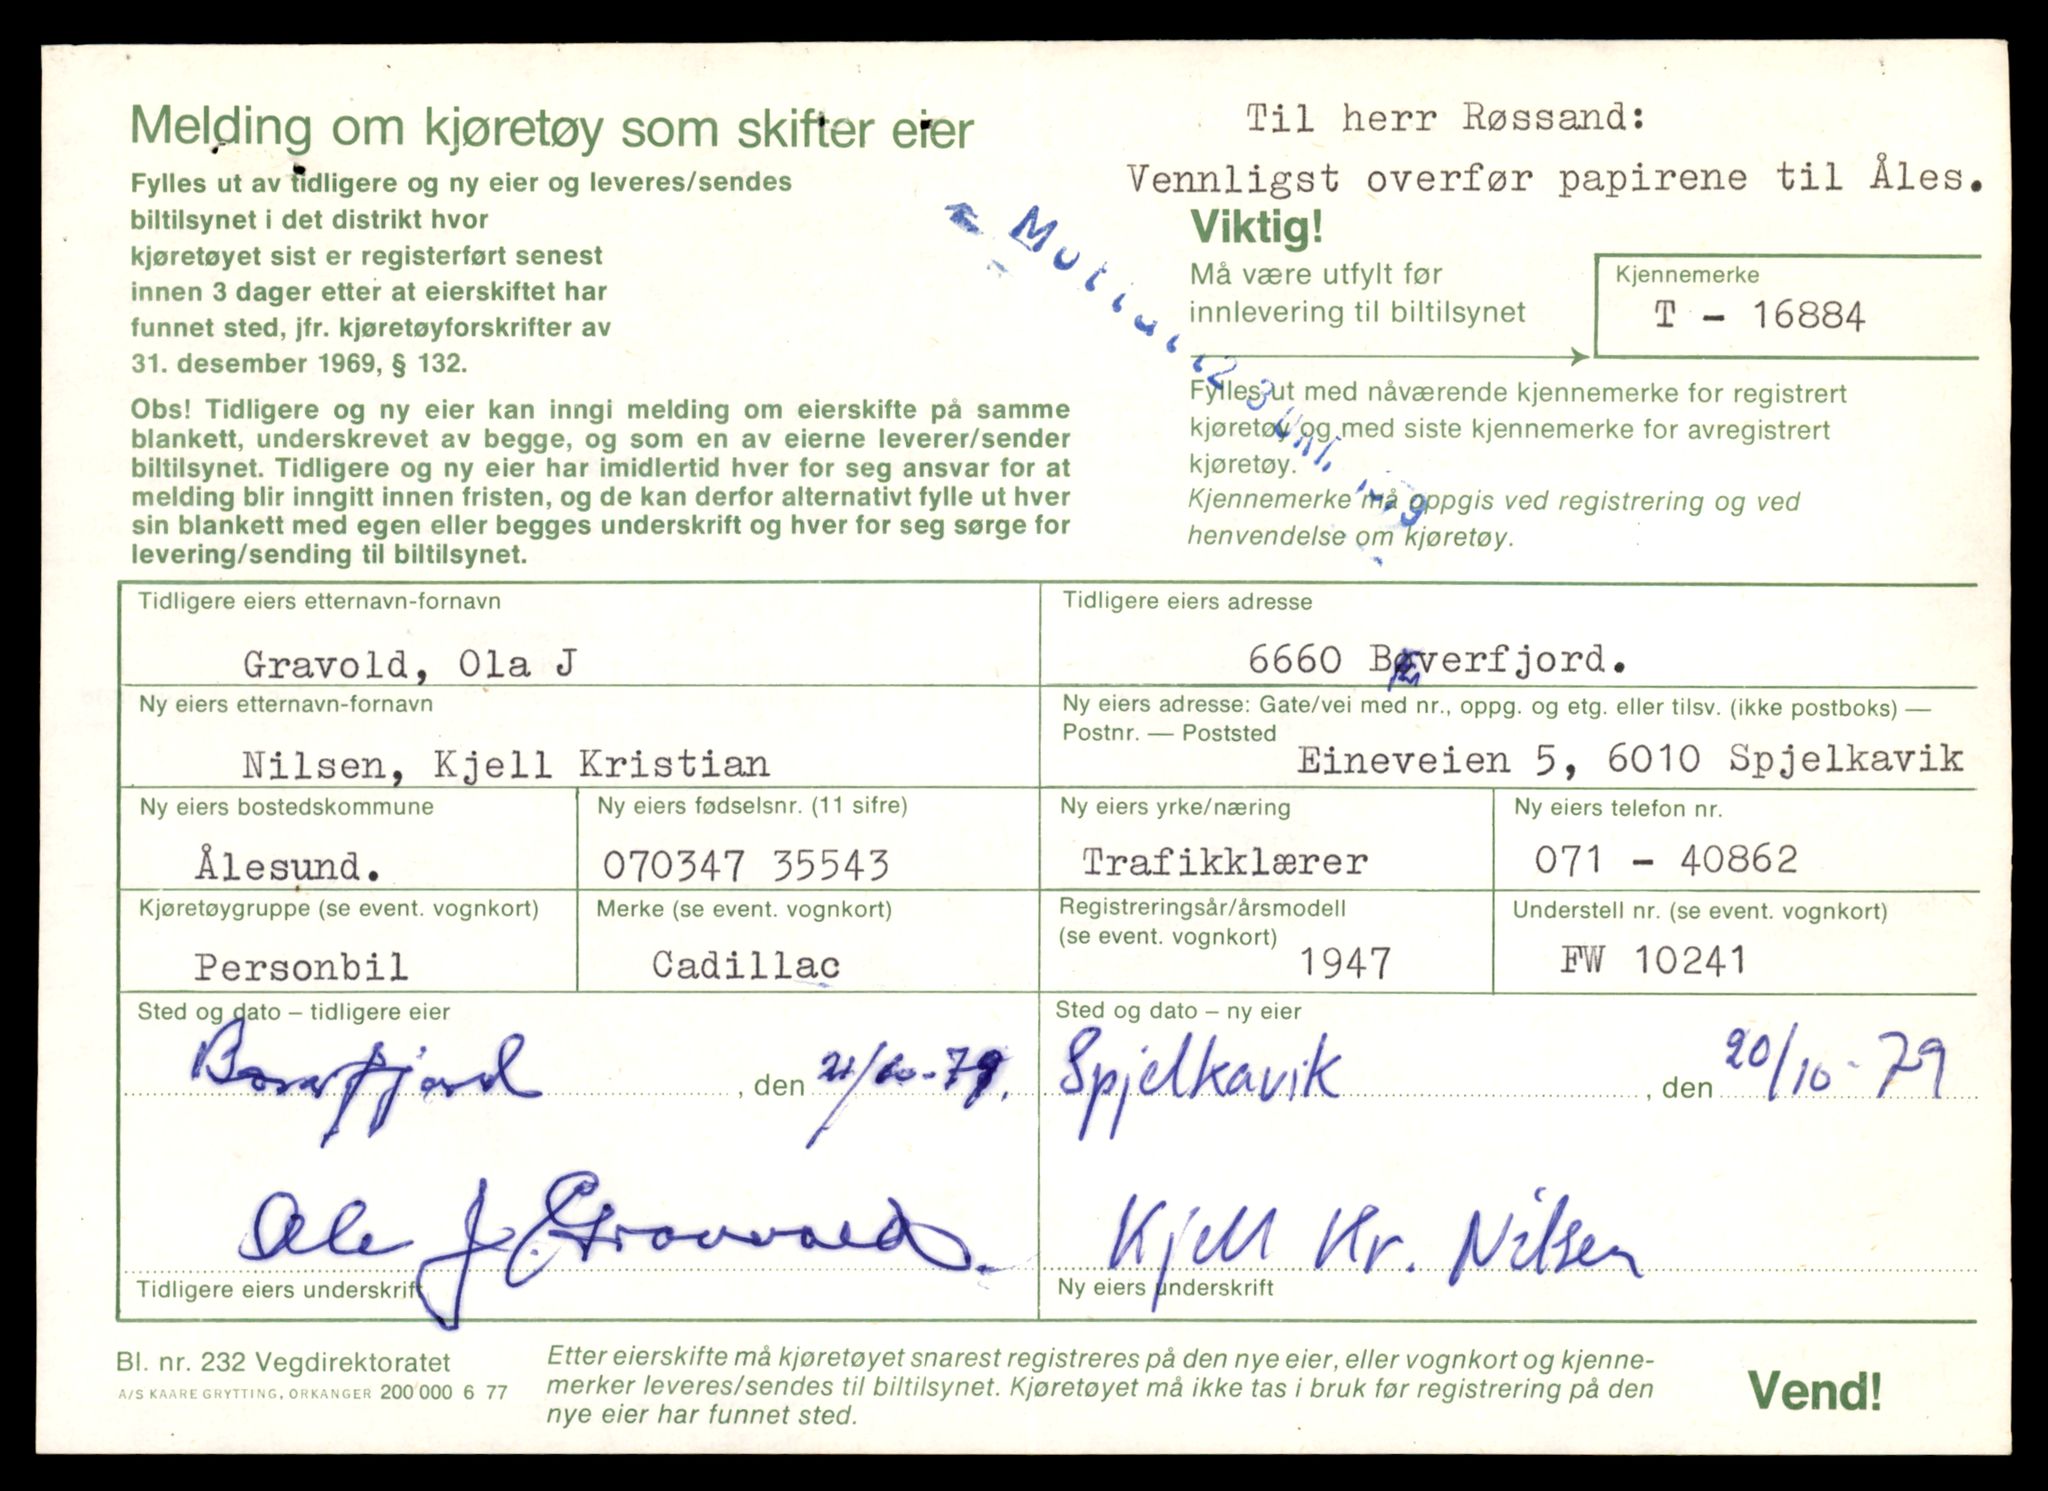 Melding om kjøretøy som skifter eier
Fylles ut av tidligere og ny eier og leveres/sendes
biltilsynet i det distrikt hvor
kjøretøyet sist er registerført senest
innen 3 dager etter at eierskiftet har
funnet sted, jfr. kjøretøyforskrifter av
31. desember 1969, § 132.
Obs! Tidligere og ny eier kan inngi melding om eierskifte på samme
blankett, underskrevet av begge, og som en av eierne leverer/sender
biltilsynet. Tidligere og ny eier har imidlertid hver for seg ansvar for at
melding blir inngitt innen fristen, og de kan derfor alternativt fylle ut hver
sin blankett med egen eller begges underskrift og hver for seg sørge for
levering/sending til biltilsynet.
Til herr Røssand:
Vennligst overfør papirene til Åles.
Viktig!
Må være utfylt før
innlevering til biltilsynet
Kjennemerke
T - 16884
Fylles ut med nåværende kjennemerke for registrert
kjøretøy og med siste kjennemerke for avregistrert
kjøretøy.
Kjennemerke må oppgis ved registrering og ved
henvendelse om kjøretøy.
Tidligere eiers etternavn-fornavn
Gravold, Ola J
Tidligere eiers adresse
6660 Bæverfjord.
Ny eiers etternavn-fornavn
Nilsen, Kjell Kristian
Ny eiers adresse: Gate/vei med nr., oppg. og etg. eller tilsv. (ikke postboks) —
Postnr. — Poststed
Eineveien 5, 6010 Spjelkavik
Ny eiers bostedskommune
Ålesund.
Ny eiers fødselsnr. (11 sifre)
070347 35543
Ny eiers yrke/næring
Trafikklærer
Ny eiers telefon nr.
071 - 40862
Kjøretøygruppe (se event. vognkort)
Personbil
Merke (se event. vognkort)
Cadillac
Registreringsår/årsmodell
(se event. vognkort)
1947
Understell nr. (se event. vognkort)
FW 10241
Sted og dato – tidligere eier
, den 21/10-79.
Sted og dato – ny eier
Spjelkavik, den 20/10-79
Ola J. Gravvold
Tidligere eiers underskrift
Kjell Kr. Nilsen
Ny eiers underskrift
Bl. nr. 232 Vegdirektoratet
A/S KAARE GRYTTING, ORKANGER 200 000 6 77
Etter eierskifte må kjøretøyet snarest registreres på den nye eier, eller vognkort og kjenne-
merker leveres/sendes til biltilsynet. Kjøretøyet må ikke tas i bruk før registrering på den
nye eier har funnet sted.
Vend!